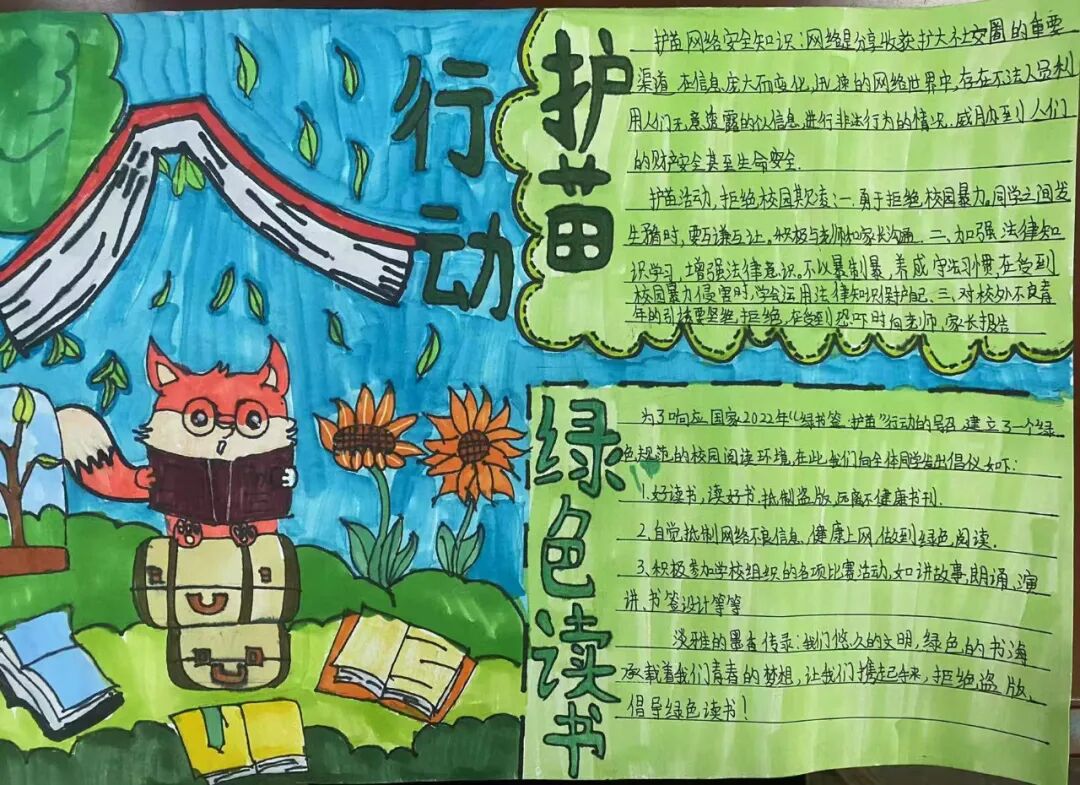 护苗
行动
护苗网络安全知识:网络是分享收获扩大社交圈的重要
渠道,在信息庞大而变化,迅速的网络世界中,存在不法人员利
用人们无意透露的信息,进行非法行为的情况,威胁到人们
的财产安全甚至生命安全.
护苗活动,拒绝校园欺凌:一.勇于拒绝校园暴力。同学之间发
生矛盾时,要互谦互让。积极与老师和家长沟通.二、加强法律知
识学习,增强法律意识,不以暴制暴,养成守法习惯,在受到
校园暴力侵害时,学会运用法律知识保护自己.三.对校外不良青
年的引诱要坚绝拒绝,在受到恐吓时向老师、家长报告
绿色读书
为了响应国家2022年“绿书签·护苗”行动的号召,建立了一个绿
色规范的校园阅读环境,在此我们向全体同学发出倡仪如下:
1.好读书,读好书.抵制盗版,远离不健康书刊.
2.自觉抵制网络不良信息、健康上网,做到绿色阅读.
3.积极参加学校组织的各项比赛活动,如讲故事,朗诵、演
讲、书签设计等等
淡雅的墨香传录:我们悠久的文明,绿色的书海
承载着我们青春的梦想,让我们携起手来,拒绝盗版、
倡导绿色读书!